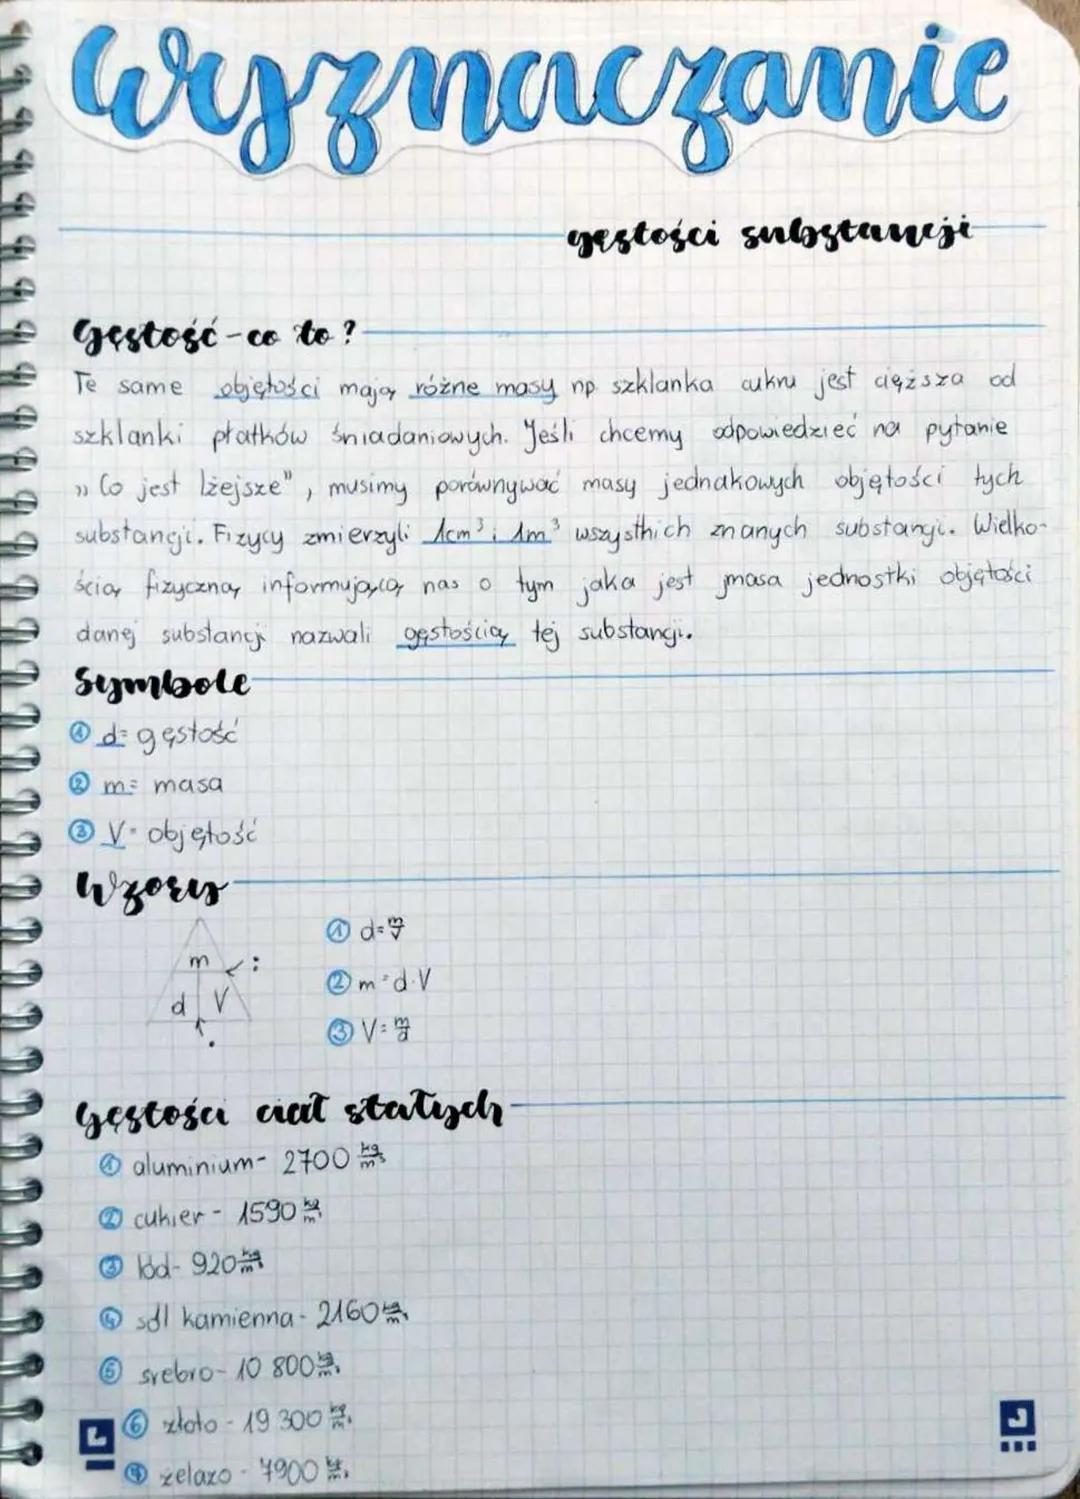 Wyznaczanie
gęstości substancji
Gęstość - co to ?
Te same objętości mają różne masy np szklanka cukru jest cięższa od
szklanki płatków śniadaniowych. Jeśli chcemy odpowiedzieć na pytanie
„Co jest lżejsze", musimy porównywać masy jednakowych objętości tych
substancji. Fizycy zmierzyli 1cm³ i 1m³ wszystkich znanych substancji. Wielko-
ścią fizyczną informującą nas o tym jaka jest masa jednostki objętości
danej substancji nazwali gęstością tej substancji.
Symbole
① d= gęstość
② m= masa
③ V= objętość
Wzory
m :
d V
.
① d=m/V
② m=d·V
③ V=m/d
Gęstości ciał stałych
① aluminium- 2700 kg/m³
② cukier - 1590 kg/m³
③ lód- 920 kg/m³
④ sól kamienna- 2160 kg/m³
⑤ srebro- 10 800 kg/m³
⑥ złoto - 19 300 kg/m³
⑦ żelazo - 7900 kg/m³